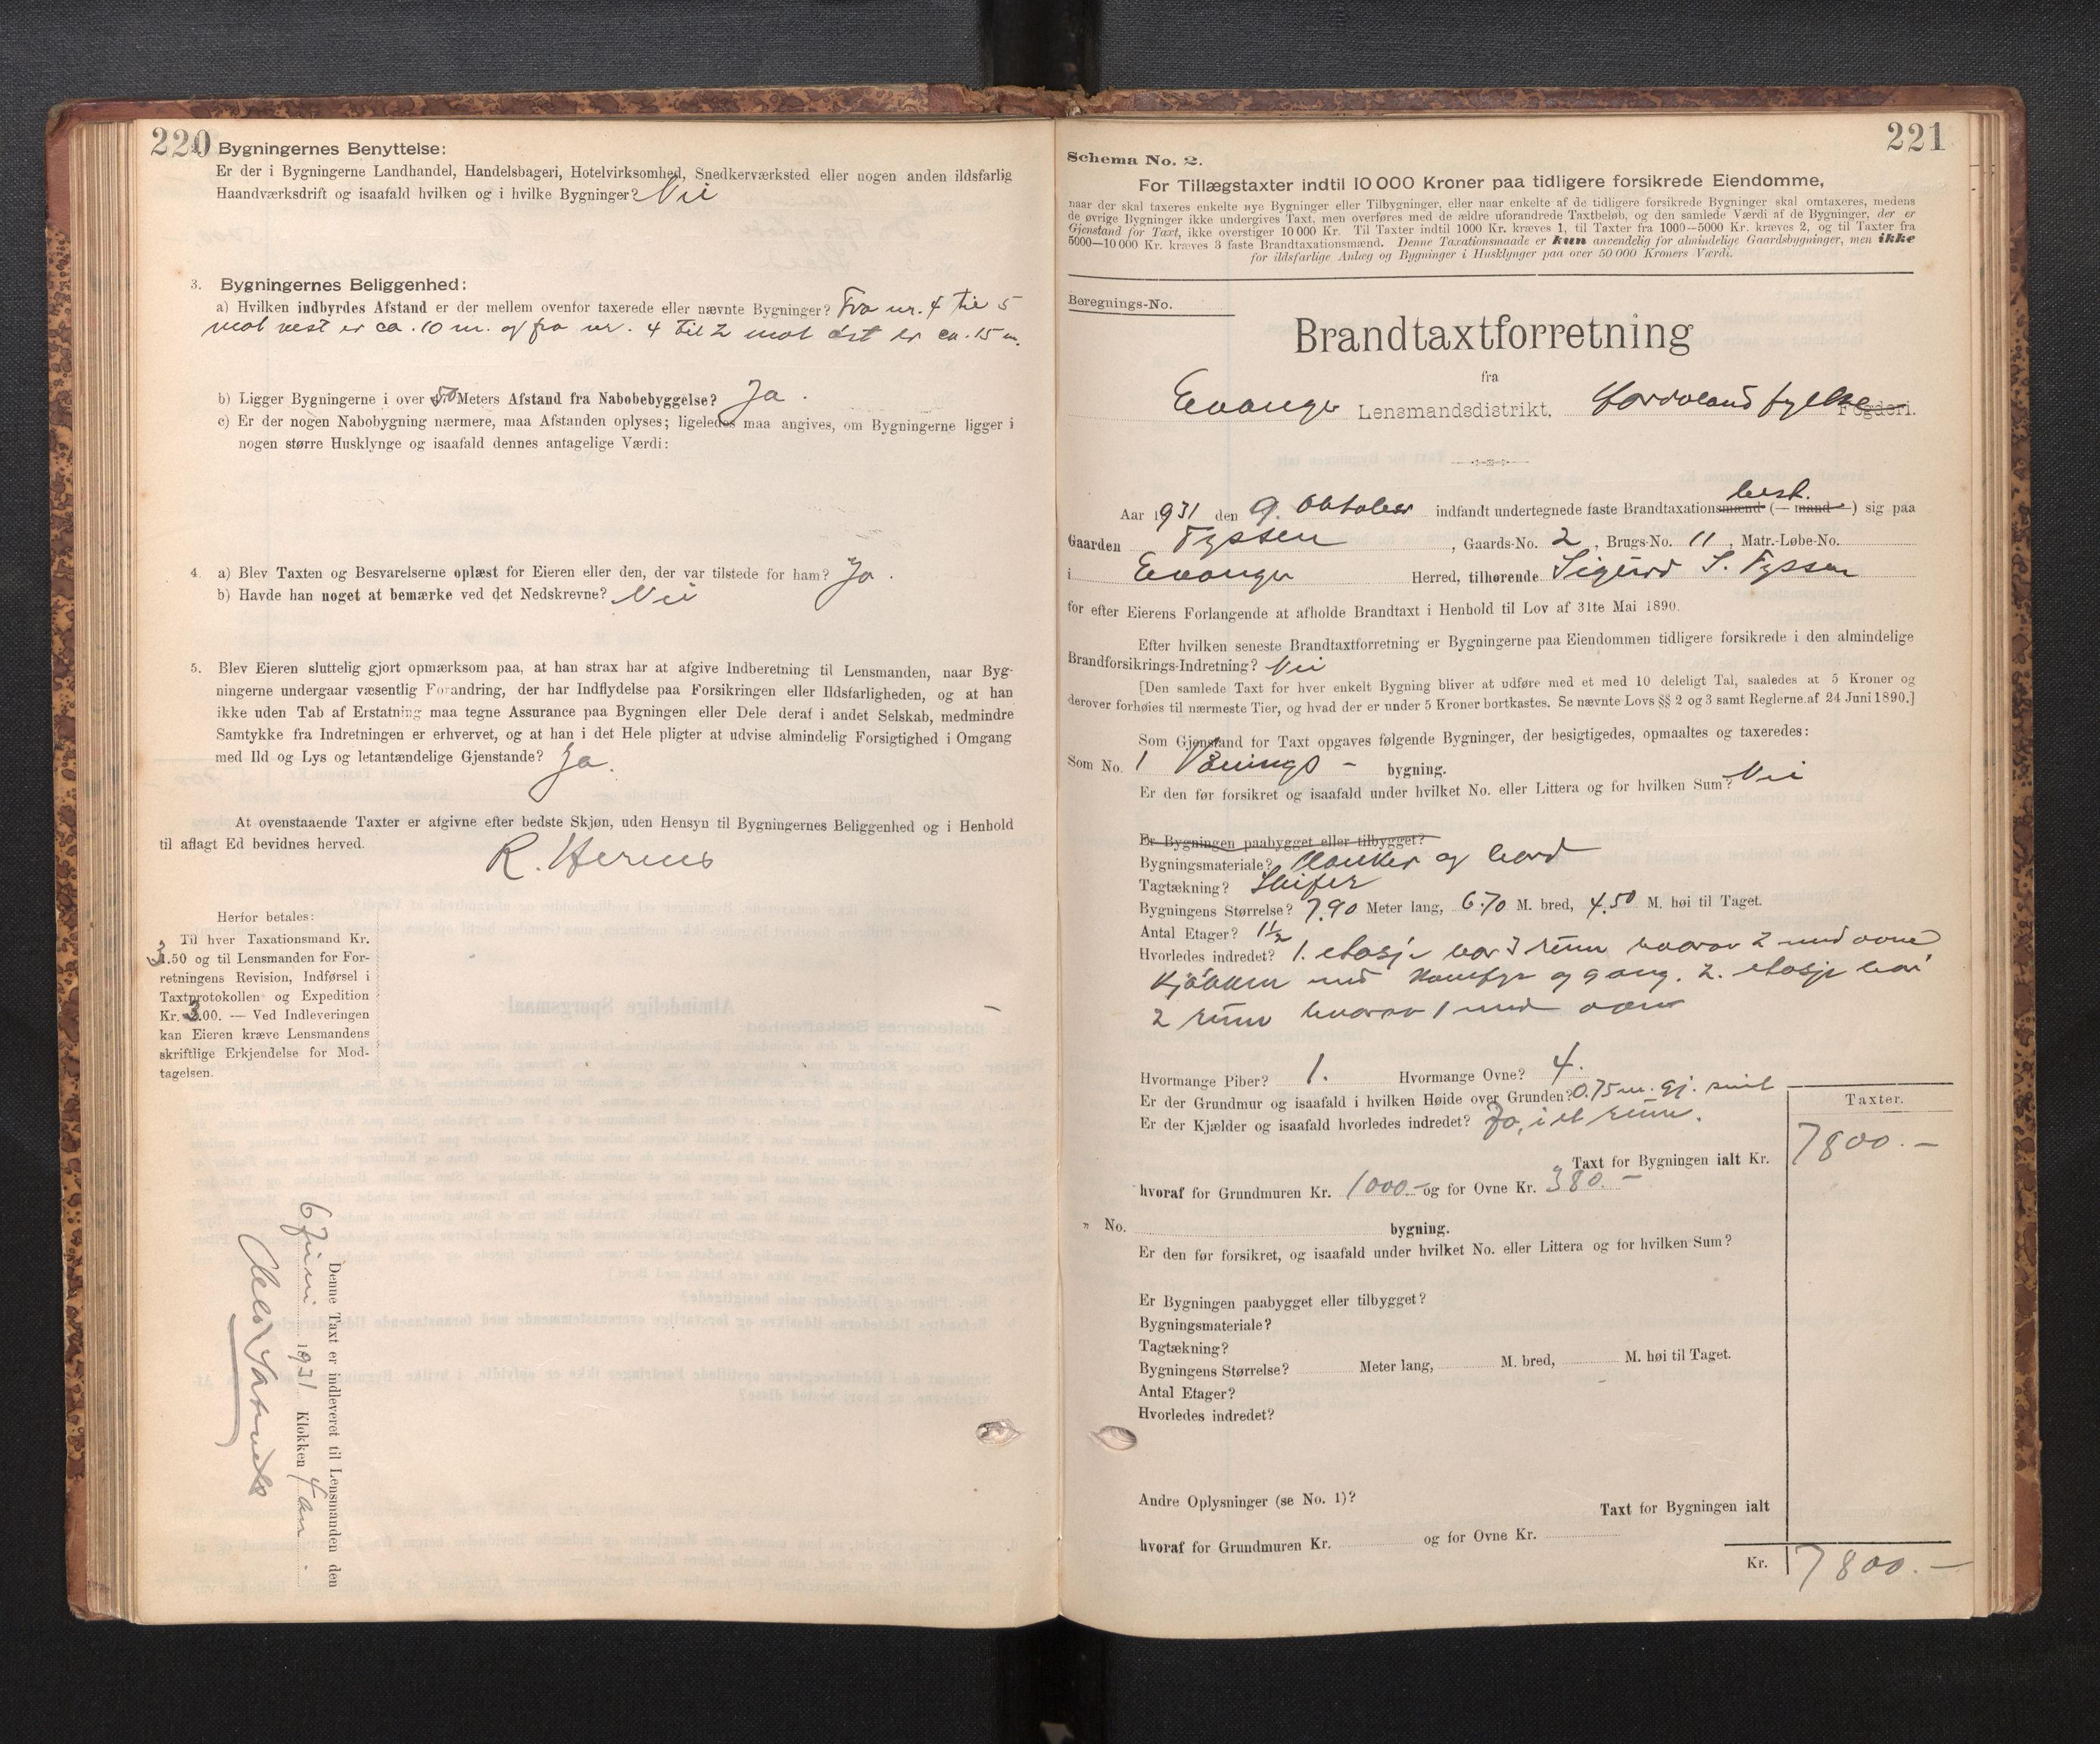 220
Bygningernes Benyttelse:
Er der i Bygningerne Landhandel, Handelsbageri, Hotelvirksomhed, Snedkerværksted eller nogen anden ildsfarlig
Haandværksdrift og isaafald hvilken og i hvilke Bygninger? Nei
3. Bygningernes Beliggenhed:
a) Hvilken indbyrdes Afstand er der mellem ovenfor taxerede eller nævnte Bygninger? Fra nr. 4 til 5
mot vest er ca. 10 m. og fra nr. 4 til 2 mot øst er ca. 15 m.
b) Ligger Bygningerne i over 50 Meters Afstand fra Nabobebyggelse? Ja.
c) Er der nogen Nabobygning nærmere, maa Afstanden oplyses; ligeledes maa angives, om Bygningerne ligger i
nogen større Husklynge og isaafald dennes antagelige Værdi:
4. a) Blev Taxten og Besvarelserne oplæst for Eieren eller den, der var tilstede for ham? Ja.
b) Havde han noget at bemærke ved det Nedskrevne? Nei
5. Blev Eieren sluttelig gjort opmærksom paa, at han strax har at afgive Indberetning til Lensmanden, naar Byg-
ningerne undergaar væsentlig Forandring, der har Indflydelse paa Forsikringen eller Ildsfarligheden, og at han
ikke uden Tab af Erstatning maa tegne Assurance paa Bygningen eller Dele deraf i andet Selskab, medmindre
Samtykke fra Indretningen er erhvervet, og at han i det Hele pligter at udvise almindelig Forsigtighed i Omgang
med Ild og Lys og letantændelige Gjenstande? Ja.
At ovenstaaende Taxter er afgivne efter bedste Skjøn, uden Hensyn til Bygningernes Beliggenhed og i Henhold
til aflagt Ed bevidnes herved.
R. Hernes
Herfor betales:
Til hver Taxationsmand Kr.
3.50 og til Lensmanden for For-
retningens Revision, Indførsel i
Taxtprotokollen og Expedition
Kr. 3.00. — Ved Indleveringen
kan Eieren kræve Lensmandens
skriftlige Erkjendelse for Mod-
tagelsen.
Denne Taxt er indleveret til Lensmanden den
6 Juni 1931 Klokken 4
221
Schema No. 2.
For Tillægstaxter indtil 10 000 Kroner paa tidligere forsikrede Eiendomme,
naar der skal taxeres enkelte nye Bygninger eller Tilbygninger, eller naar enkelte af de tidligere forsikrede Bygninger skal omtaxeres, medens
de øvrige Bygninger ikke undergives Taxt, men overføres med de ældre uforandrede Taxtbeløb, og den samlede Værdi af de Bygninger, der er
Gjenstand for Taxt, ikke overstiger 10 000 Kr. Til Taxter indtil 1000 Kr. kræves 1, til Taxter fra 1000—5000 Kr. kræves 2, og til Taxter fra
5000—10 000 Kr. kræves 3 faste Brandtaxationsmænd. Denne Taxationsmaade er kun anvendelig for almindelige Gaardsbygninger, men ikke
for ildsfarlige Anlæg og Bygninger i Husklynger paa over 50 000 Kroners Værdi.
Beregnings-No.
Brandtaxtforretning
fra
Evanger Lensmandsdistrikt, Hordaland fylke Fogderi.
Aar 1931 den 9. Oktober indfandt undertegnede faste Brandtaxationsmænd (— mand —) best. sig paa
Gaarden Fyssen, Gaards-No. 2, Brugs-No. 11, Matr.-Løbe-No.
i Evanger Herred, tilhørende Sigurd S. Fyssen
for efter Eierens Forlangende at afholde Brandtaxt i Henhold til Lov af 31te Mai 1890.
Efter hvilken seneste Brandtaxtforretning er Bygningerne paa Eiendommen tidligere forsikrede i den almindelige
Brandforsikrings-Indretning? Nei
[Den samlede Taxt for hver enkelt Bygning bliver at udføre med et med 10 deleligt Tal, saaledes at 5 Kroner og
derover forhøies til nærmeste Tier, og hvad der er under 5 Kroner bortkastes. Se nævnte Lovs §§ 2 og 3 samt Reglerne af 24 Juni 1890.]
Som Gjenstand for Taxt opgaves følgende Bygninger, der besigtigedes, opmaaltes og taxeredes:
Som No. 1 Vånings - bygning.
Er den før forsikret og isaafald under hvilket No. eller Littera og for hvilken Sum? Nei
Er Bygningen paabygget eller tilbygget?
Bygningsmateriale? Planker og bord
Tagtækning? Skifer
Bygningens Størrelse? 7.90 Meter lang, 6.70 M. bred, 4.50 M. høi til Taget.
Antal Etager? 1½
Hvorledes indredet? 1. etasje har 3 rum hvorav 2 med ovne
Kjøkken med Komfyr og gang. 2. etasje har
2 rum hvorav 1 med ovn
Hvormange Piber? 1. Hvormange Ovne? 4.
Er der Grundmur og isaafald i hvilken Høide over Grunden? 0.75 m. gj. snit
Er der Kjælder og isaafald hvorledes indredet? Ja, i et rum.
Taxter.
Taxt for Bygningen ialt Kr. 7800.—
hvoraf for Grundmuren Kr. 1000.- og for Ovne Kr. 380.—
" No. bygning.
Er den før forsikret, og isaafald under hvilket No. eller Littera og for hvilken Sum?
Er Bygningen paabygget eller tilbygget?
Bygningsmateriale?
Tagtækning?
Bygningens Størrelse? Meter lang, M. bred, M. høi til Taget.
Antal Etager?
Hvorledes indredet?
Andre Oplysninger (se No. 1)?
Taxt for Bygningen ialt
hvoraf for Grundmuren Kr. og for Ovne Kr.
Kr. 7800.—